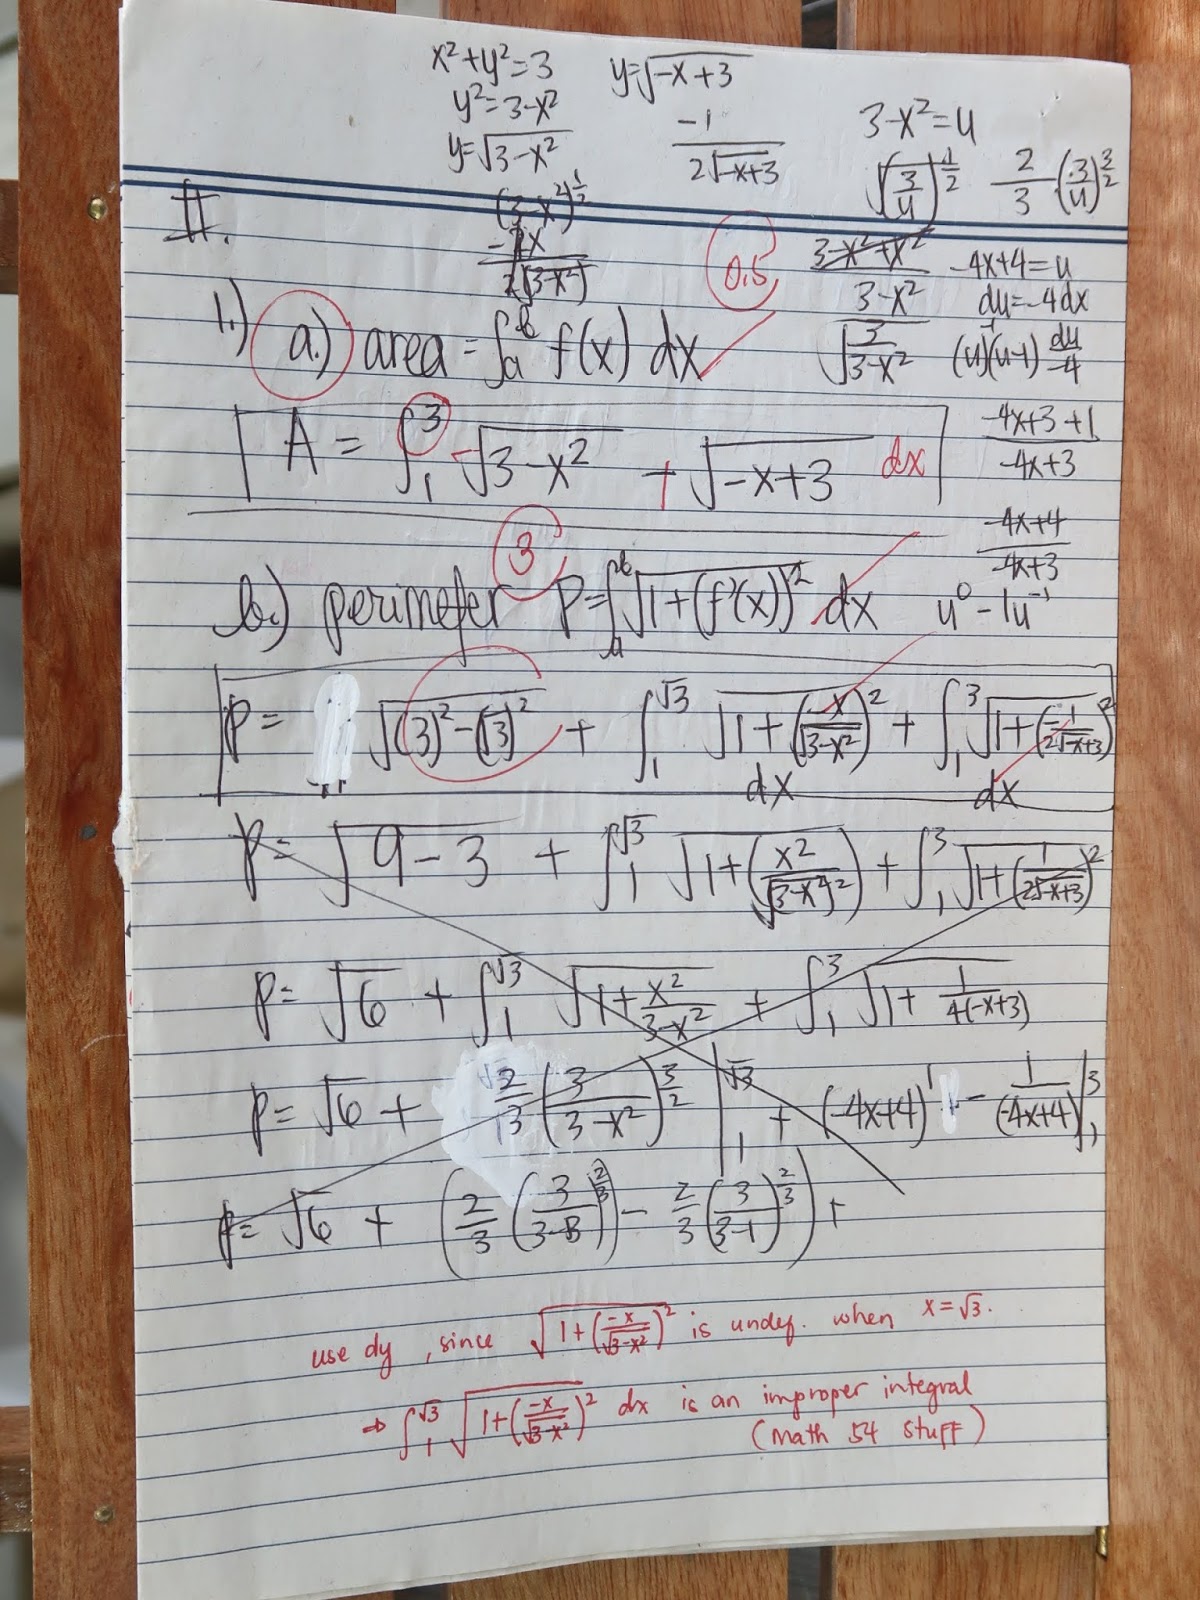 x²+y²=3
y²=3-x²
y=√(3-x²)
y=√(-x+3)
-1/(2√(-x+3))
3-x²=u
√(3/u)^(1/2)  2/3·(3/u)^(3/2)
II.
(3-x²)^(1/2)
-2x/(2√(3-x²))
0.5
(3-x²+x²)/(3-x²)
√(3/(3-x²))
-4x+4=u
du=-4dx
(u⁻¹)(u-1) du/-4
(-4x+3+1)/(-4x+3)
(-4x+4)/(-4x+3)
u⁰-1u⁻¹
1.) a.) area = ∫ₐᵇ f(x) dx
A = ∫₁³ -√(3-x²) + √(-x+3) dx
3
b.) perimeter P=∫ₐᵇ √(1+(f'(x))²) dx
P= √((3)²-(√3)²) + ∫₁^√3 √(1+(-x/√(3-x²))²) dx + ∫₁³ √(1+(-1/(2√(-x+3)))²) dx
P= √(9-3) + ∫₁^√3 √(1+(x²/√(3-x²)²)) + ∫₁³ √(1+(1/(2√(-x+3)))²)
P= √6 + ∫₁^√3 √(1+x²/(3-x²)) + ∫₁³ √(1+1/(4(-x+3)))
P= √6 + 2/3 (3/(3-x²))^(3/2) |₁^√3 + (-4x+4)¹ - 1/(-4x+4) |₁³
P= √6 + (2/3 (3/(3-3))^(2/3) - 2/3 (3/(3-1))^(2/3)) +
use dy, since √(1+(-x/√(3-x²))²) is undef. when x=√3.
⇒ ∫₁^√3 √(1+(-x/√(3-x²))²) dx is an improper integral
(math 54 stuff)